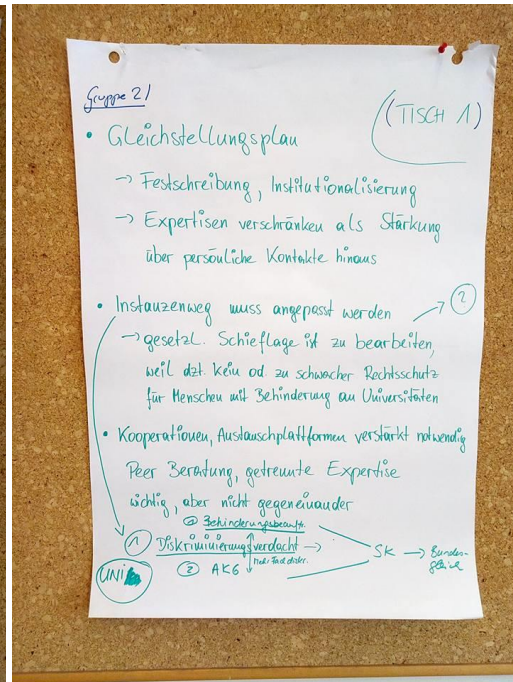 Gruppe 2/
(TISCH 1)
• Gleichstellungsplan
→ Festschreibung, Institutionalisierung
→ Expertisen verschränken als Stärkung
über persönliche Kontakte hinaus
• Instanzenweg muss angepasst werden → ②
→ gesetzl. Schieflage ist zu bearbeiten,
weil dzt. kein od. zu schwacher Rechtsschutz
für Menschen mit Behinderung an Universitäten
• Kooperationen, Austauschplattformen verstärkt notwendig
Peer Beratung, getrennte Expertise
wichtig, aber nicht gegeneinander
① Behinderungsbeauftr.
① Diskriminierungsverdacht →
② AKG
SK → Bundes-
gericht
UNI